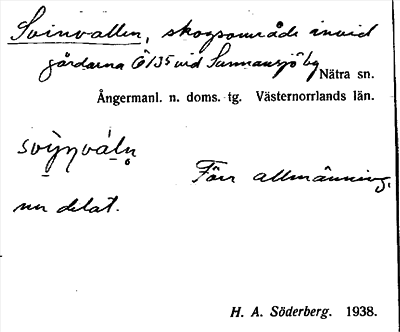 Svinvallen, skogsområde invid
gårdarna Ö 135 vid Sunnansjö by
Nätra sn.
Ångermanl. n. doms. tg. Västernorrlands län.
svỳnváln̥
Förr allmänning,
nu delat.
H. A. Söderberg. 1938.